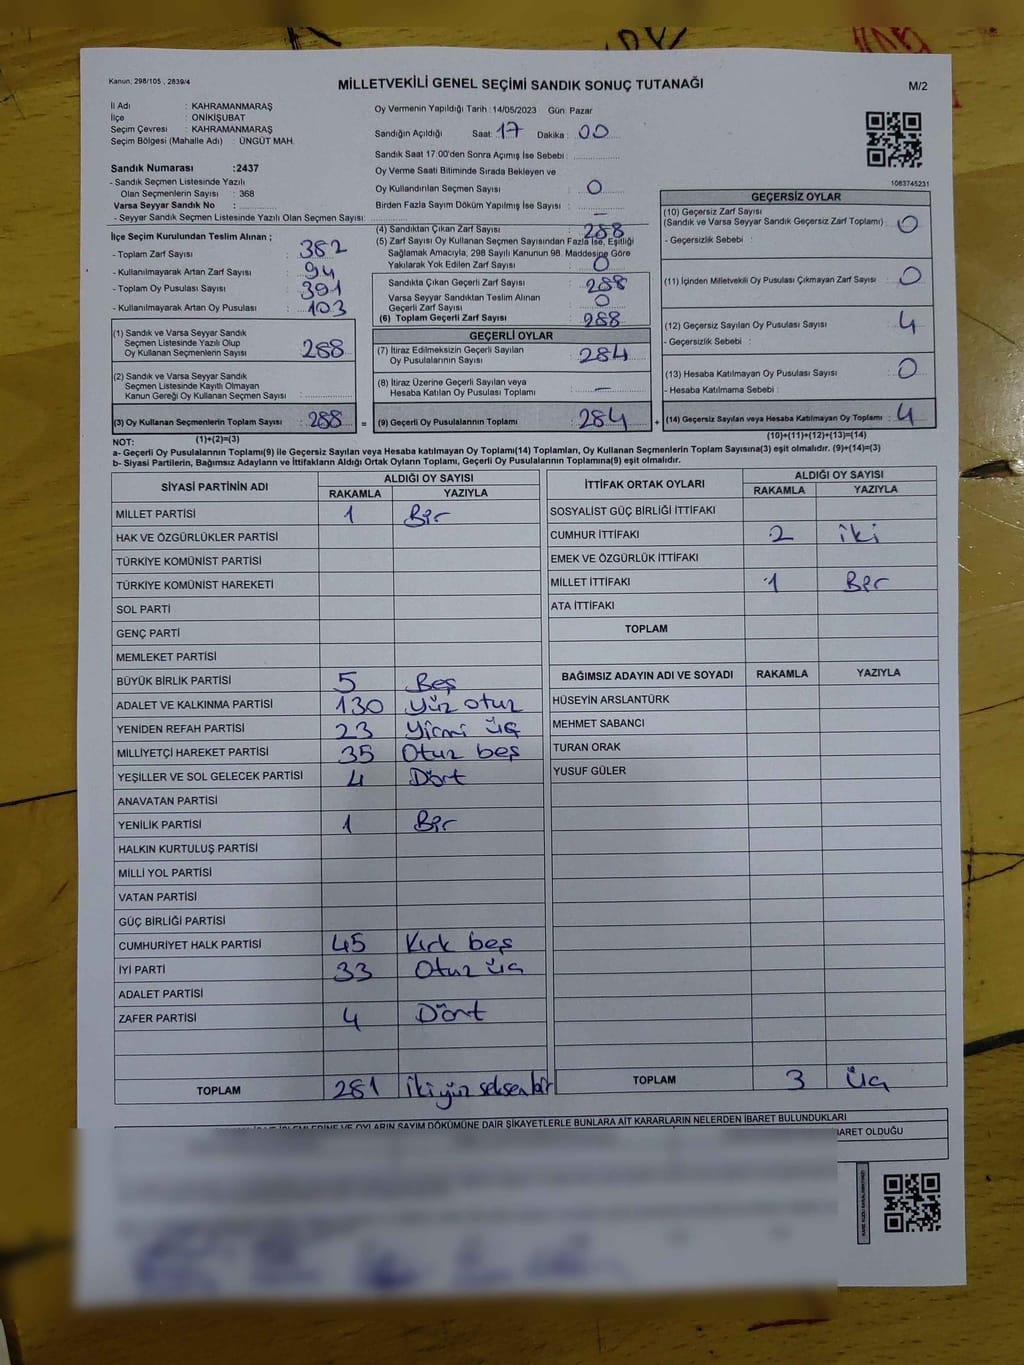 Kanun: 298/105 , 2839/4
MİLLETVEKİLİ GENEL SEÇİMİ SANDIK SONUÇ TUTANAĞI
M/2
İl Adı : KAHRAMANMARAŞ
İlçe : ONİKİŞUBAT
Seçim Çevresi : KAHRAMANMARAŞ
Seçim Bölgesi (Mahalle Adı) : ÜNGÜT MAH.
Sandık Numarası :2437
- Sandık Seçmen Listesinde Yazılı
Olan Seçmenlerin Sayısı : 368
Varsa Seyyar Sandık No :
- Seyyar Sandık Seçmen Listesinde Yazılı Olan Seçmen Sayısı:
Oy Vermenin Yapıldığı Tarih : 14/05/2023 Gün Pazar
Sandığın Açıldığı Saat: 17 Dakika : 00
Sandık Saat 17:00'den Sonra Açımış İse Sebebi :
Oy Verme Saati Bitiminde Sırada Bekleyen ve
Oy Kullandırılan Seçmen Sayısı : 0
Birden Fazla Sayım Döküm Yapılmış İse Sayısı : —
1083745231
İlçe Seçim Kurulundan Teslim Alınan ;
- Toplam Zarf Sayısı : 382
- Kullanılmayarak Artan Zarf Sayısı : 94
- Toplam Oy Pusulası Sayısı : 391
- Kullanılmayarak Artan Oy Pusulası : 103
(1) Sandık ve Varsa Seyyar Sandık
Seçmen Listesinde Yazılı Olup
Oy Kullanan Seçmenlerin Sayısı : 288
(2) Sandık ve Varsa Seyyar Sandık
Seçmen Listesinde Kayıtlı Olmayan
Kanun Gereği Oy Kullanan Seçmen Sayısı :
(3) Oy Kullanan Seçmenlerin Toplam Sayısı : 288 =
(1)+(2)=(3)
(4) Sandıktan Çıkan Zarf Sayısı : 288
(5) Zarf Sayısı Oy Kullanan Seçmen Sayısından Fazla İse, Eşitliği
Sağlamak Amacıyla, 298 Sayılı Kanunun 98. Maddesine Göre
Yakılarak Yok Edilen Zarf Sayısı : 0
Sandıkta Çıkan Geçerli Zarf Sayısı : 288
Varsa Seyyar Sandıktan Teslim Alınan
Geçerli Zarf Sayısı : 0
(6) Toplam Geçerli Zarf Sayısı : 288
GEÇERLİ OYLAR
(7) İtiraz Edilmeksizin Geçerli Sayılan
Oy Pusulalarının Sayısı : 284
(8) İtiraz Üzerine Geçerli Sayılan veya
Hesaba Katılan Oy Pusulası Toplamı : —
(9) Geçerli Oy Pusulalarının Toplamı : 284 +
GEÇERSİZ OYLAR
(10) Geçersiz Zarf Sayısı
(Sandık ve Varsa Seyyar Sandık Geçersiz Zarf Toplamı) : 0
- Geçersizlik Sebebi :
(11) İçinden Milletvekili Oy Pusulası Çıkmayan Zarf Sayısı : 0
(12) Geçersiz Sayılan Oy Pusulası Sayısı : 4
- Geçersizlik Sebebi :
(13) Hesaba Katılmayan Oy Pusulası Sayısı : 0
- Hesaba Katılmama Sebebi :
(14) Geçersiz Sayılan veya Hesaba Katılmayan Oy Toplamı : 4
(10)+(11)+(12)+(13)=(14)
NOT:
a- Geçerli Oy Pusulalarının Toplamı(9) ile Geçersiz Sayılan veya Hesaba katılmayan Oy Toplamı(14) Toplamları, Oy Kullanan Seçmenlerin Toplam Sayısına(3) eşit olmalıdır. (9)+(14)=(3)
b- Siyasi Partilerin, Bağımsız Adayların ve İttifakların Aldığı Ortak Oyların Toplamı, Geçerli Oy Pusulalarının Toplamına(9) eşit olmalıdır.
SİYASİ PARTİNİN ADI ALDIĞI OY SAYISI
RAKAMLA YAZIYLA
MİLLET PARTİSİ 1 Bir
HAK VE ÖZGÜRLÜKLER PARTİSİ
TÜRKİYE KOMÜNİST PARTİSİ
TÜRKİYE KOMÜNİST HAREKETİ
SOL PARTİ
GENÇ PARTİ
MEMLEKET PARTİSİ
BÜYÜK BİRLİK PARTİSİ 5 Beş
ADALET VE KALKINMA PARTİSİ 130 Yüz otuz
YENİDEN REFAH PARTİSİ 23 Yirmi üç
MİLLİYETÇİ HAREKET PARTİSİ 35 Otuz beş
YEŞİLLER VE SOL GELECEK PARTİSİ 4 Dört
ANAVATAN PARTİSİ
YENİLİK PARTİSİ 1 Bir
HALKIN KURTULUŞ PARTİSİ
MİLLİ YOL PARTİSİ
VATAN PARTİSİ
GÜÇ BİRLİĞİ PARTİSİ
CUMHURİYET HALK PARTİSİ 45 Kırk beş
İYİ PARTİ 33 Otuz üç
ADALET PARTİSİ
ZAFER PARTİSİ 4 Dört
TOPLAM 281 İkiyüz seksen bir
İTTİFAK ORTAK OYLARI ALDIĞI OY SAYISI
RAKAMLA YAZIYLA
SOSYALİST GÜÇ BİRLİĞİ İTTİFAKI
CUMHUR İTTİFAKI 2 iki
EMEK VE ÖZGÜRLÜK İTTİFAKI
MİLLET İTTİFAKI 1 Bir
ATA İTTİFAKI
TOPLAM
BAĞIMSIZ ADAYIN ADI VE SOYADI RAKAMLA YAZIYLA
HÜSEYİN ARSLANTÜRK
MEHMET SABANCI
TURAN ORAK
YUSUF GÜLER
TOPLAM 3 üç
OYLARIN SAYIM DÖKÜMÜNE DAİR ŞİKAYETLERLE BUNLARA AİT KARARLARIN NELERDEN İBARET BULUNDUKLARI
İBARET OLDUĞU